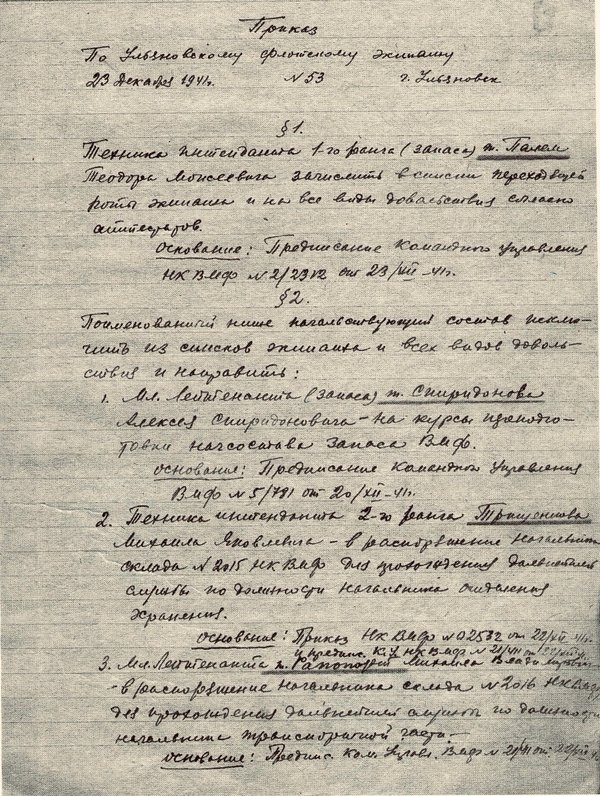 Приказ
По Ульяновскому флотскому экипажу
23 декабря 1941г. N 53 г. Ульяновск
§ 1.
Техника интенданта 1-го ранга (запаса) т. Пален
Теодора Моисеевича зачислить в списки переходящей
роты экипажа и на все виды довольствия согласно
аттестатов.
Основание: Предписание Командного Управления
НК ВМФ N 2/2312 от 23/XII-41г.
§ 2.
Поименованный ниже начальствующий состав исклю-
чить из списков экипажа и всех видов доволь-
ствия и направить:
1. Мл. Лейтенанта (запаса) т. Спиридонова
Алексея Спиридоновича - на курсы переподго-
товки начсостава запаса ВМФ.
Основание: Предписание Командного Управления
ВМФ N 5/791 от 20/XII-41г.
2. Техника интенданта 2-го ранга
Михаила Яковлевича - в распоряжение начальника
склада N 2015 НК ВМФ для прохождения дальнейшей
службы по должности начальника отделения
хранения.
Основание: Приказ НК ВМФ N 02532 от 22/XII-41г.
и предпис. К.У. НК ВМФ N 21/411 от
3. Мл. Лейтенанта т. Рапопорт Михаила
- в распоряжение начальника склада N 2016 НК ВМФ
для прохождения дальнейшей службы по должности
начальника транспортной части.
Основание: Предпис. Ком. Управ. ВМФ N от